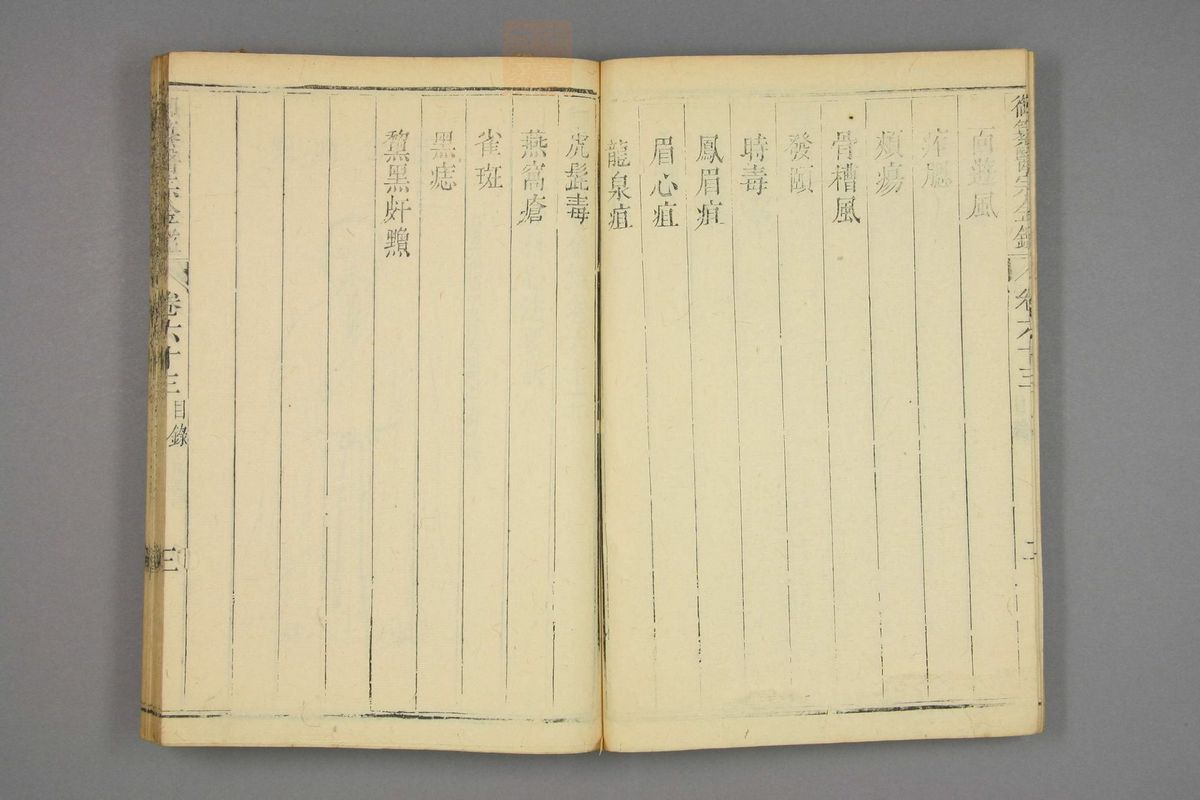 御纂醫宗金鑑
卷六十三
二
面遊風
痄腮
頰瘍
骨槽風
發頤
時毒
鳳眉疽
眉心疽
龍泉疽
虎髭毒
燕窩瘡
雀斑
黑痣
黧黑皯䵴
卷六十三 目錄
三